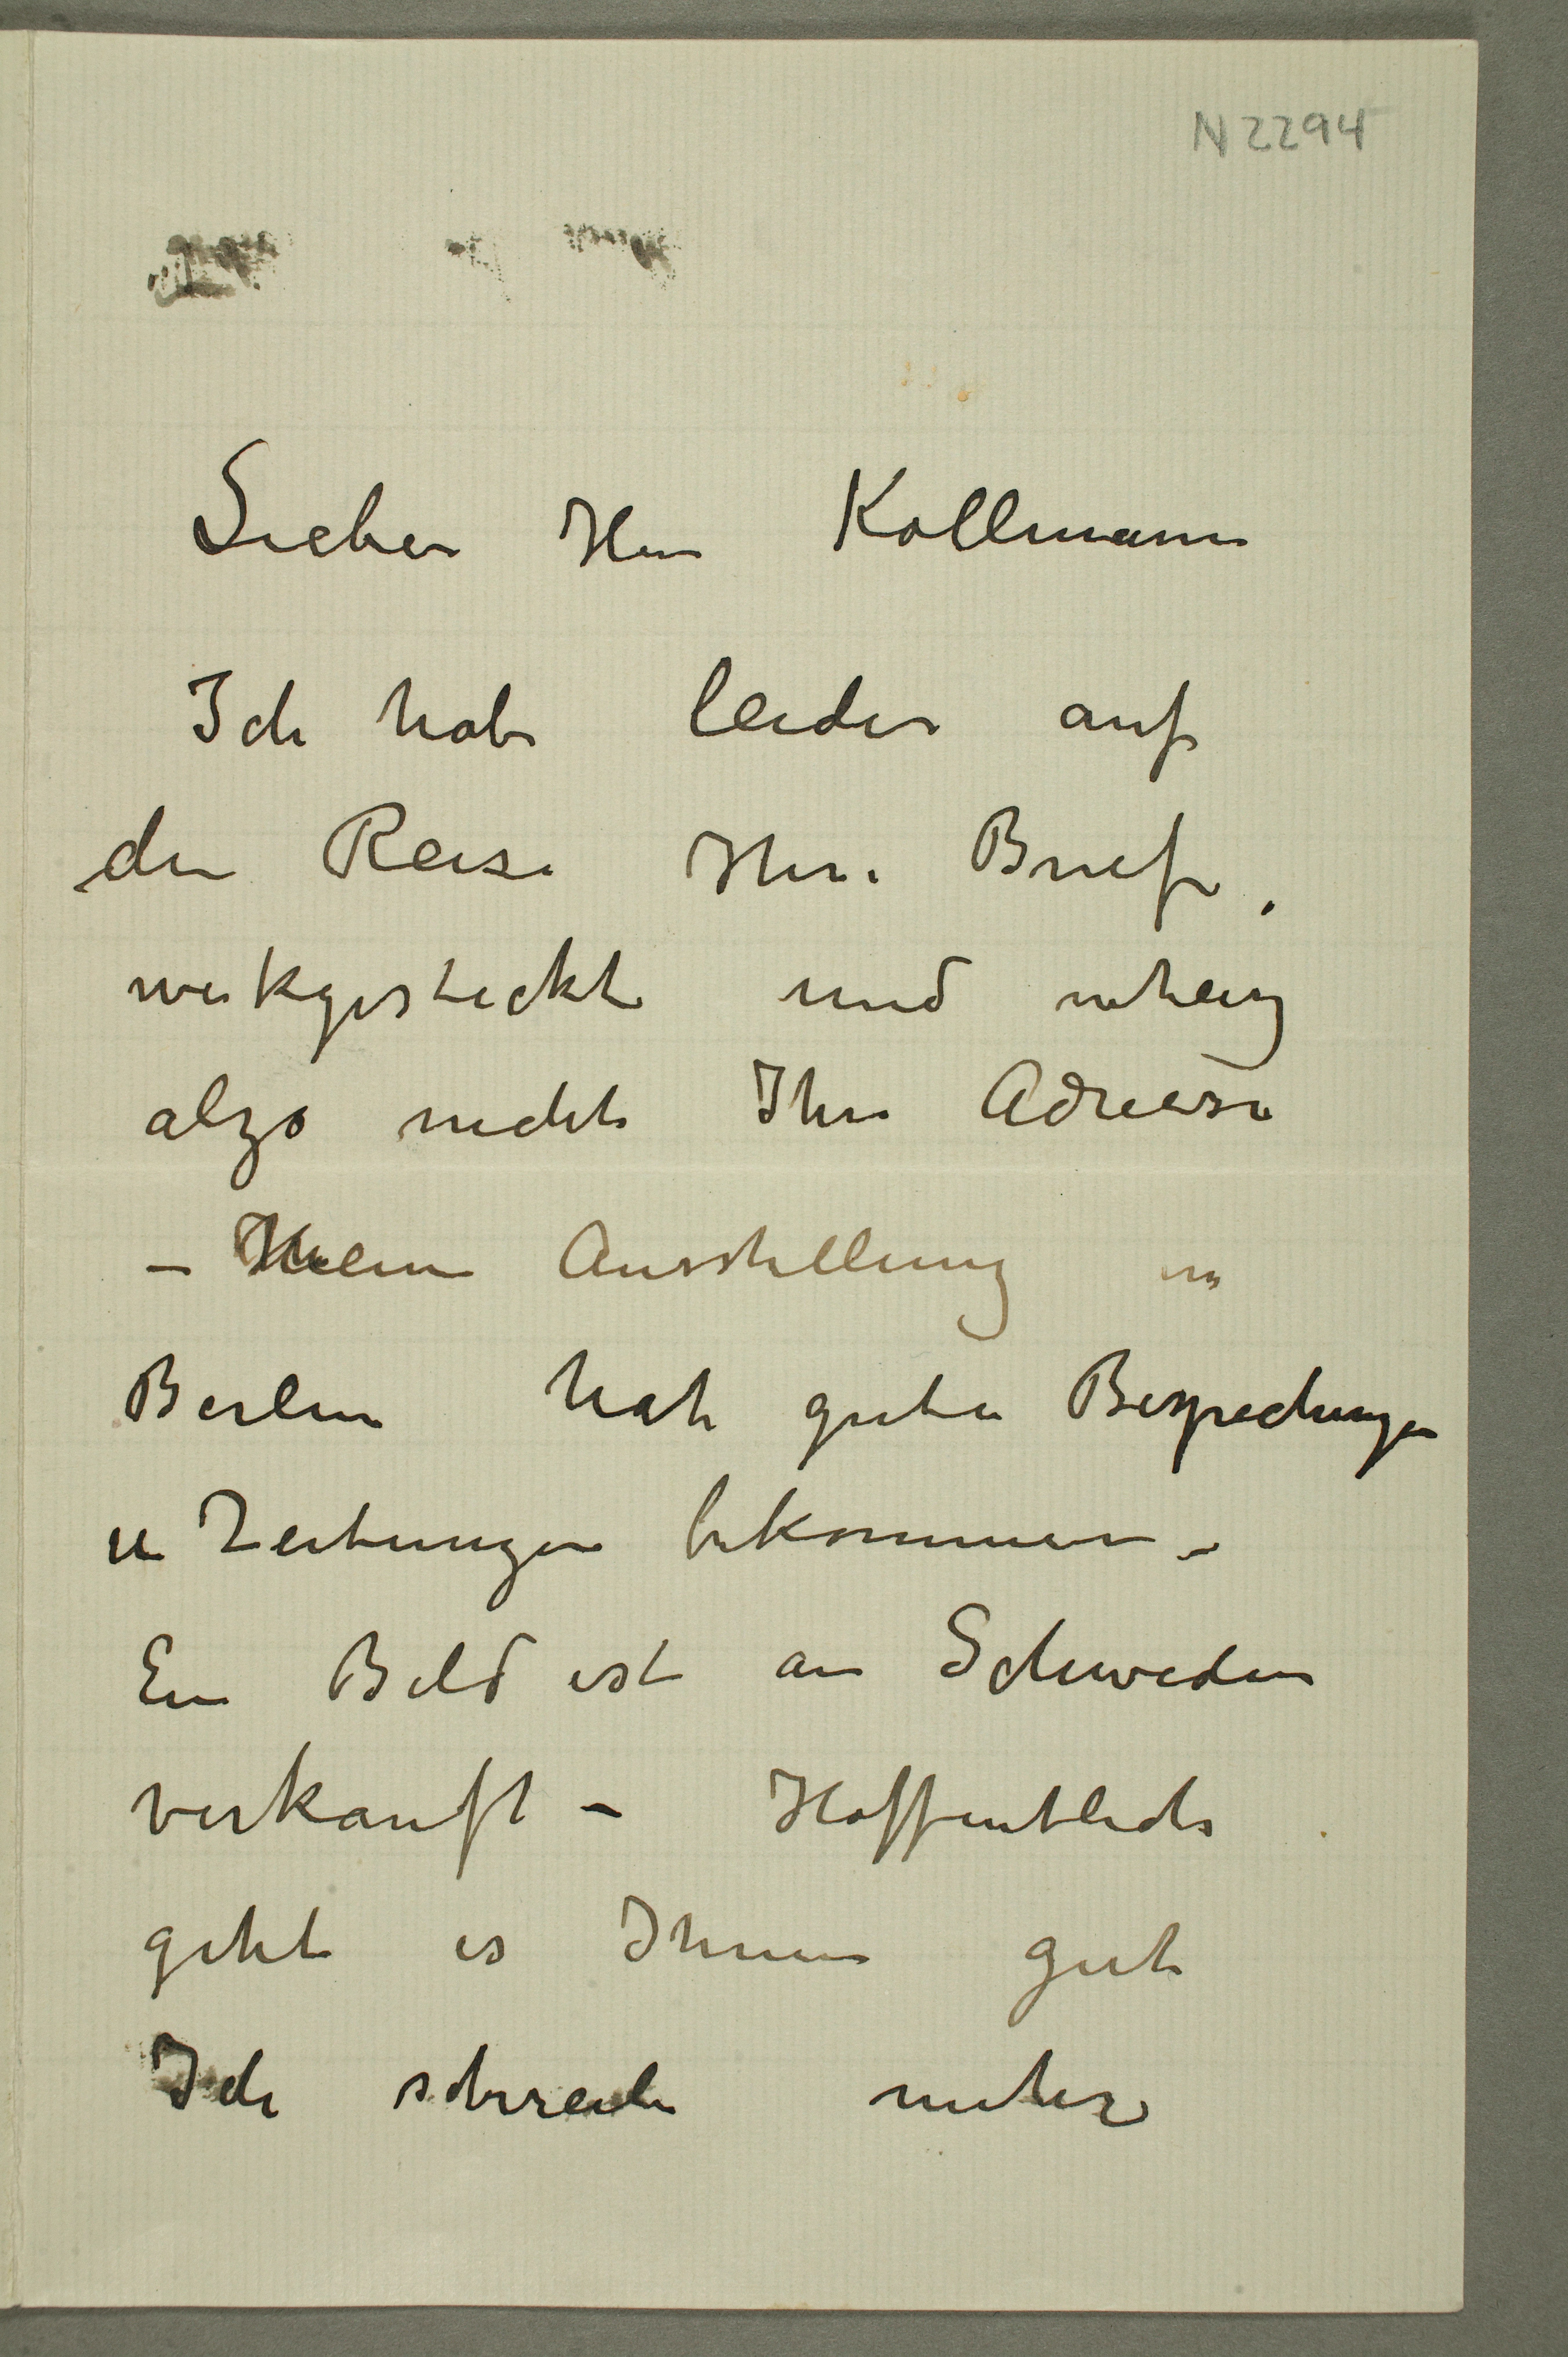 N 2294
Lieber Herr Kollmann
Ich habe leider auf
der Reise Ihre Briefe,
wekgesteckt und
alzo nicht Ihre Adresse
– Meine Ausstellung in
Berlin hat gute Besprechungen
in Zeitungen bekommen –
Ein Bild ist an Schweden
verkauft – Hoffentlich
geht es Ihnen gut
Ich schreibe mehr